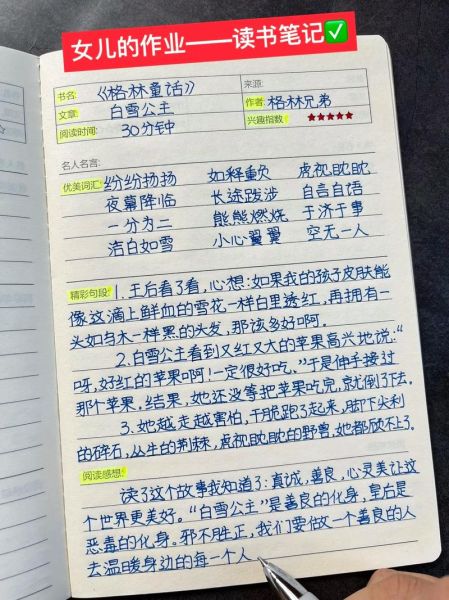 女儿的作业——读书笔记✅
书名: 《格林童话》 来源:
文章: 白雪公主 作者: 格林兄弟
阅读时间: 30分钟 兴趣指数: ★★★★★
名人名言:
优美词汇: 纷纷扬扬 如释重负 虎视眈眈
夜幕降临 长途跋涉 自言自语
一分为二 熊熊燃烧 于济于事
洁白如雪 小心翼翼 空无一人
精彩句段: 1. 王后看了看,心想:如果我的孩子皮肤能
像这滴上鲜血的雪花一样白里透红,再拥有一
头如乌木一样黑的头发,那该多好啊。
2. 白雪公主看到又红又大的苹果高兴地说:“
呀,好红的苹果啊!一定很好吃。”于是伸手接过
那个苹果,结果,她还没等把苹果吃完,就倒了下去。
3. 她越走越害怕,干脆跑了起来,脚下尖利
的碎石,丛生的荆棘,虎视眈眈的野兽,她都顾不上了。
阅读感想:
读了这个故事我知道了:真诚,善良,心灵美让这
个世界更美好。“白雪公主”是善良的化身,皇后是
恶毒的化身。邪不胜正,我们要做一个善良的人
去温暖身边的每一个人